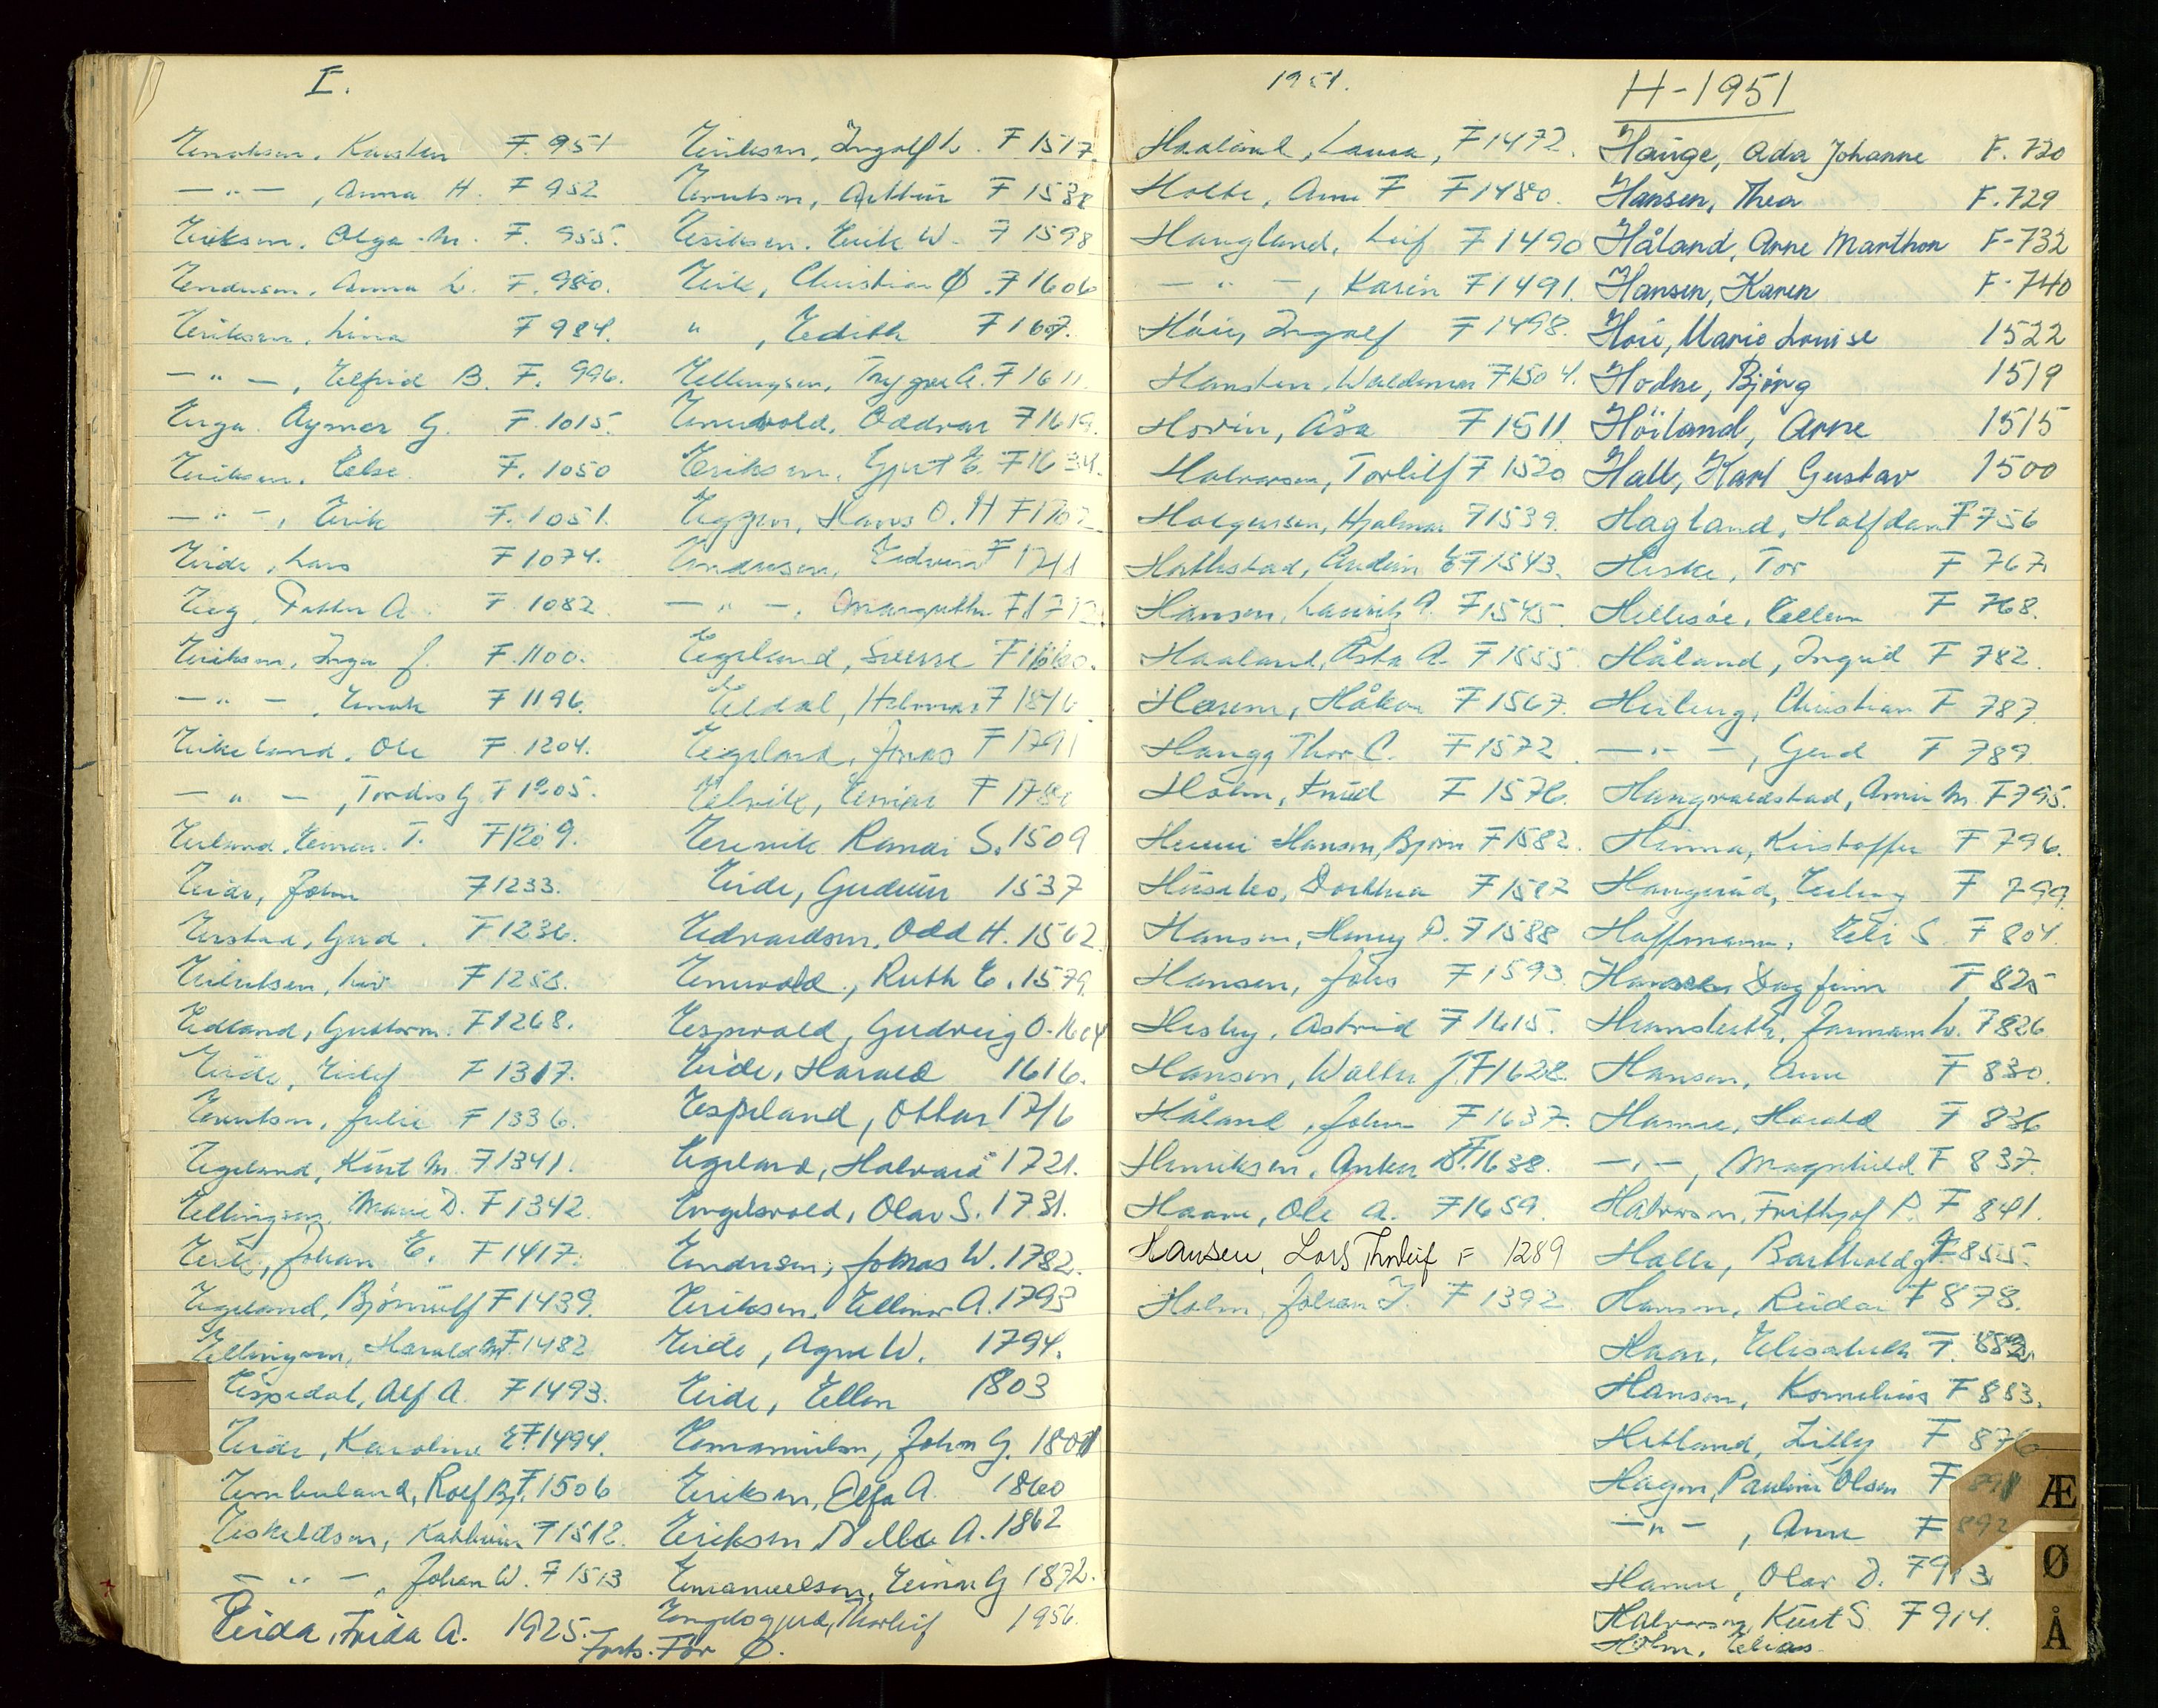 I.
Enoksen, Karsten F. 951
— " — , Anna H. F 952
Eriksen, Olga M. F. 955.
Endresen, Anna L. F. 980.
Eriksen, Lina F 984.
— " — , Elfrid B. F. 996.
Erga, Aymar G. F. 1015.
Eriksen, Else F. 1050
— " — , Erik F. 1051.
Eide, Lars F 1074.
Eeg, Petter A. F. 1082
Eriksen, Inga J. F. 1100.
— " — , Enok F 1196.
Eikeland, Ole F. 1204.
— " — , Tordis G F 1205.
Erland, Einar T. F 1209.
Eide, John F 1233.
Erstad, Gerd F 1236.
Eilertsen, Liv F 1258.
Edland, Guttorm F 1268.
Eide, Eilif F 1317.
Evertsen, Julie F 1336.
Egeland, Kurt M. F 1341.
Ellingsen, Marie D. F 1342.
Eik, Johan E. F 1417.
Egeland, Bjørnulf F 1439.
Ellingsen, Harald M F 1482
Espedal, Alf A. F 1493.
Eide, Karoline E F 1494.
Emberland, Rolf Bj. F. 1506
Eskeldsen, Kathrine F 1512.
— " — , Johan W. F 1513
Eida, Frida A. 1925.
Eriksen, Ingolf L. F 1517
Evertsen, Arthur F 1538
Eriksen, Erik W. F 1598
Eik, Christian Ø. F 1606
" , Edith F 1607.
Ellingsen, Trygve A. F 1611.
Enevold, Oddvar F 1619.
Eriksen, Gjert E. F 1634.
Eggen, Hans O. H F 1702
Endresen, Edvin F 1711
— " — , Margrethe F 1712.
Egeland, Sverre F 1660.
Eldal, Helmer F 1546
Egeland, Jonas F 1791
Elvik, Einar F 178
Eresvik Randi S. 1509
Eide, Gudrun 1537
Edvardsen, Odd H. 1562
Enevold, Ruth E. 1579.
Espevold, Gudveig O. 1604
Eide, Harald 1616.
Espeland, Ottar 1716
Egeland, Halvard 1721.
Engelsvold, Olav S. 1731.
Endresen, Johas W. 1782.
Eriksen, Ellinor A. 1793
Eide, Agna W. 1794.
Eide, Ellen 1803
Emanuelsen, John G. 1801
Eriksen, Elfa A. 1860
Eriksen Nella A. 1862
Emanuelsen, Einar G 1872.
Engelsgjerd, Thorleif 1956.
Forts. Før Ø.
1951.
Haaland, Laura, F 1472.
Holte, Arne F F 1480.
Haugland, Leif F 1490
— " — , Karin F 1491.
Høie, Ingolf F 1498.
Hansten, Waldemar F 1504.
Hovin, Åsa F 1511
Halvorsen, Torleif F 1520
Holgersen, Hjalmar F 1539.
Hattestad, Audun E F 1543.
Hansen, Lauritz A. F 1545.
Haaland, Asta A. F 1555
Harem, Håkon F 1567.
Haugg Thor C. F 1572
Holm, Knud F 1576.
Heuui Hansen, Bjørn F 1582.
Husebø, Dorthea F 1587
Hansen, Henry P. F 1588
Hansen, Johs F 1593
Hesby, Astrid F 1615.
Hansen, Walter J. F 1628.
Håland, John F 1637.
Henriksen, Anker F. 1638.
Haave, Ole A. F 1659.
Hansen, Lars Thorleif F 1289
Holm, Johan J. F 1392
H-1951
Hauge, Ada Johanne F. 720
Hansen, Thea F. 729
Håland, Arne Marthon F-732
Hansen, Karen F-740
Hoie, Marie Louise 1522
Hodne, Bjørg 1519
Höiland, Arne 1515
Hall, Karl Gustav 1500
Hagland, Halfdan F 756
Heske, Tor F 767
Hellesøe, Ellen F 768.
Håland, Ingrid F 782.
Heiberg, Christian F 787.
— " — , Gerd F 789.
Haugvaldstad, Anna M. F 795.
Hinna, Kristoffer F 796.
Haugerud, Erling F 799.
Hoffmann, Elti S. F 804.
Hansen Dagfinn F 825
Hermstuth, Jormann W. F 826
Hansen, Arne F 830.
Hamre, Harald F 836
— " — , Magnhild F 837.
Halvorsen, Frithjof P. F 841.
Halle, Barthold G F 855.
Hansen, Reidar F 878.
Haar, Elisabeth F. 882
Hansen, Kornelius F 883.
Hetland, Lilly F 876
Hagen, Pauline Olsen F 891
— " — , Anne F 892
Hamre, Olav D. F 913
Halvorsen, Kurt S. F 914.
Holm, Elias
Æ
Ø
Å